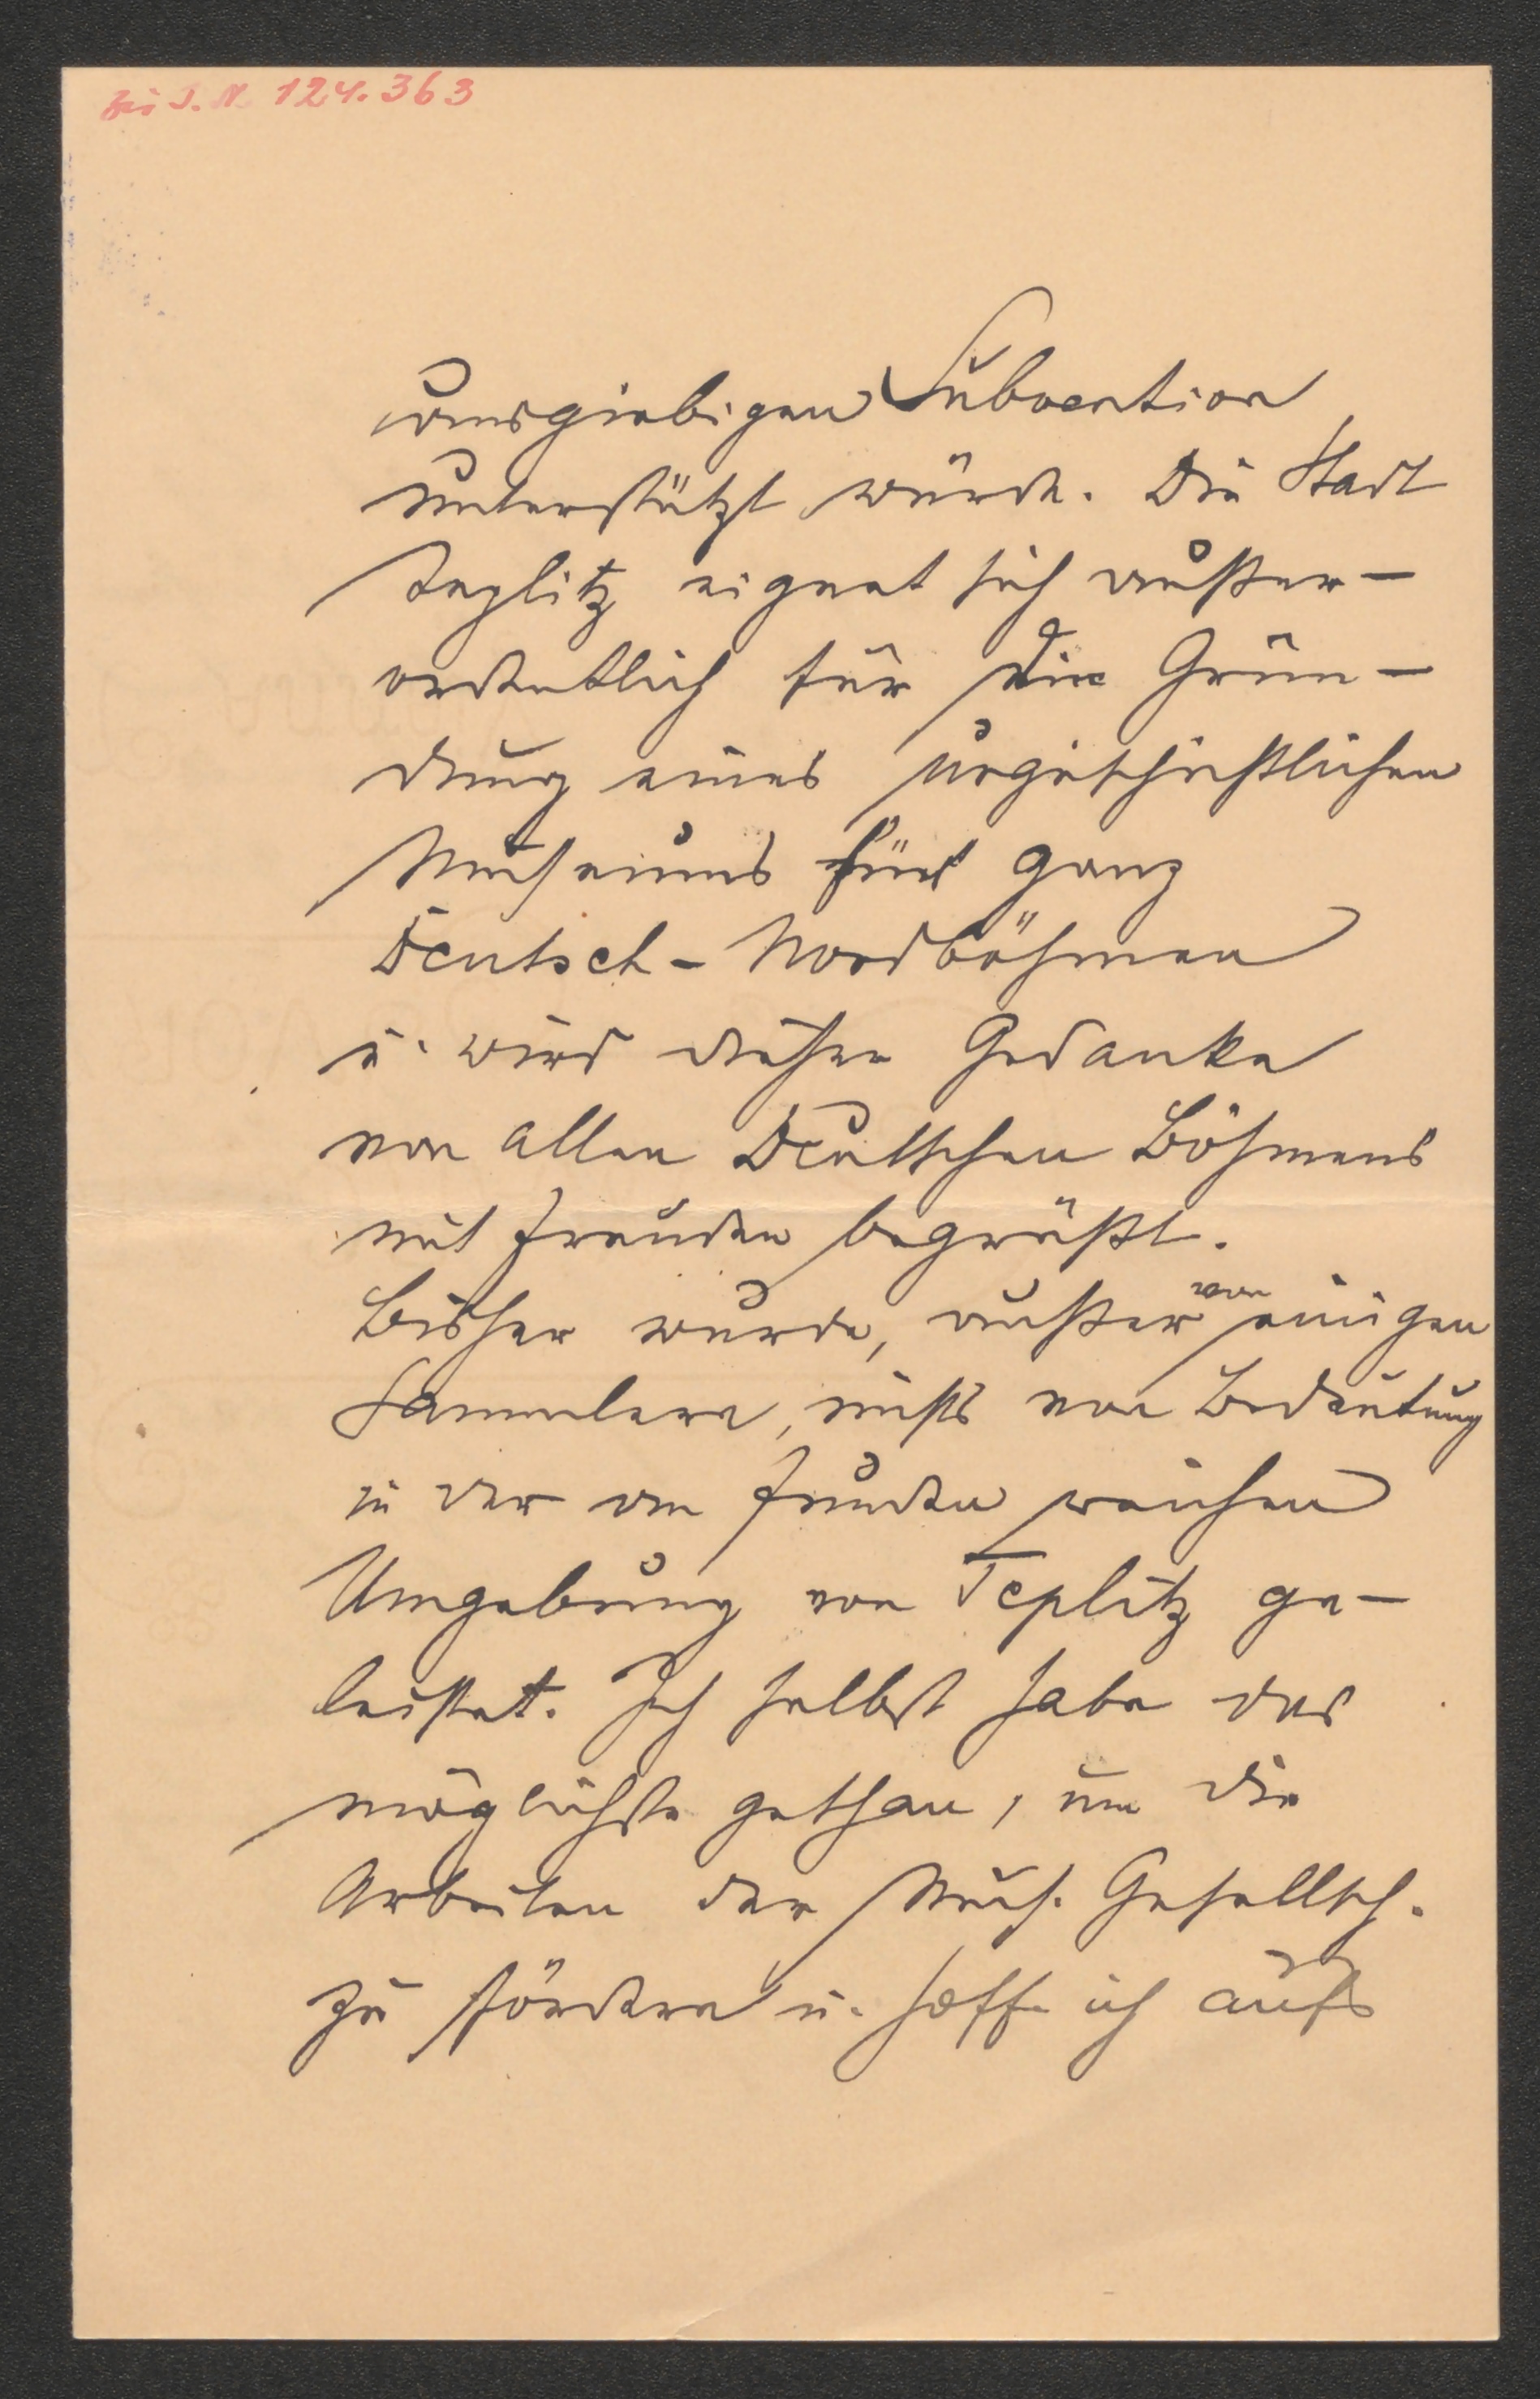 Zu I. N. 124.363
ausgiebigen Subvention
unterstützt würde. Die Stadt
Teplitz eignet sich außer-
ordentlich für die Grün-
dung eines urgeschichtlichen
Museums für ganz
Deutsch-Nordböhmen
u. wird dieser Gedanke
von allen Deutschen Böhmens
mit Freuden begrüßt.
Bisher wurde, außer von einigen
Sammlern, nichts von Bedeutung
in der an Funden reichen
Umgebung von Teplitz ge-
leistet. Ich selbst habe das
möglichste gethan, um die
Arbeiten der Mus. Gesellsch.
zu fördern u. hoffe ich aufs